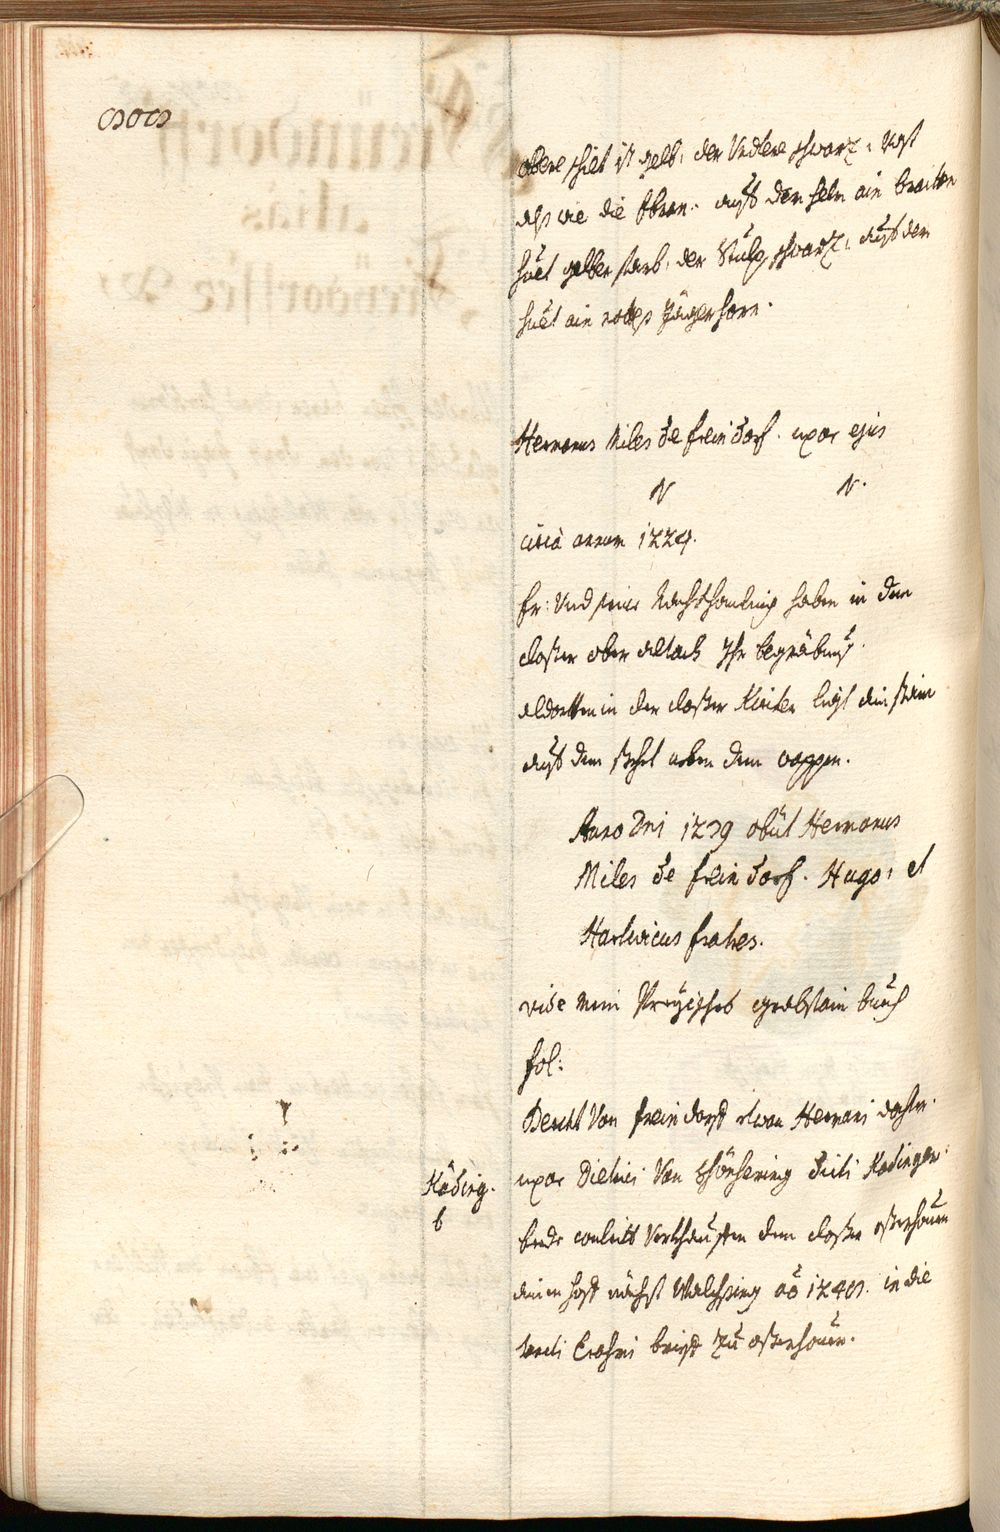 obere schilt ist gelb, der Undtere schwarz, Unst
alß wie die Obern. auß dem helm ain braitten
huet gelber farb, der Stulp schwarz, auß den
huet ain rottes Jägerhorn.
Hermanus Miles de freindorf. uxor ejus
N N.
circa annum 1224.
Er: Und seine Nachkhomling haben in dem
closter ober altach Ihr begräbnus.
aldortten in der closter Kirchen ligt ain stain
auß dem steht neben dem wappen.
Anno Dni 1239 obiit Hermanus
Miles de freindorf. Hugo, et
Hartwicus fratres.
vide mein Preyisches grabstain buech
fol:
Bercht Von freindorf etwan Hermani dochter.
Käding. uxor Dietrici Von schönhering dicti Kadinger.
b bede conleith Verkhaufften dem closter osterhouen
ainen hoff nächst Walchsing ao 1240. in die
sancti Erasmi brieff zu osterhouen.